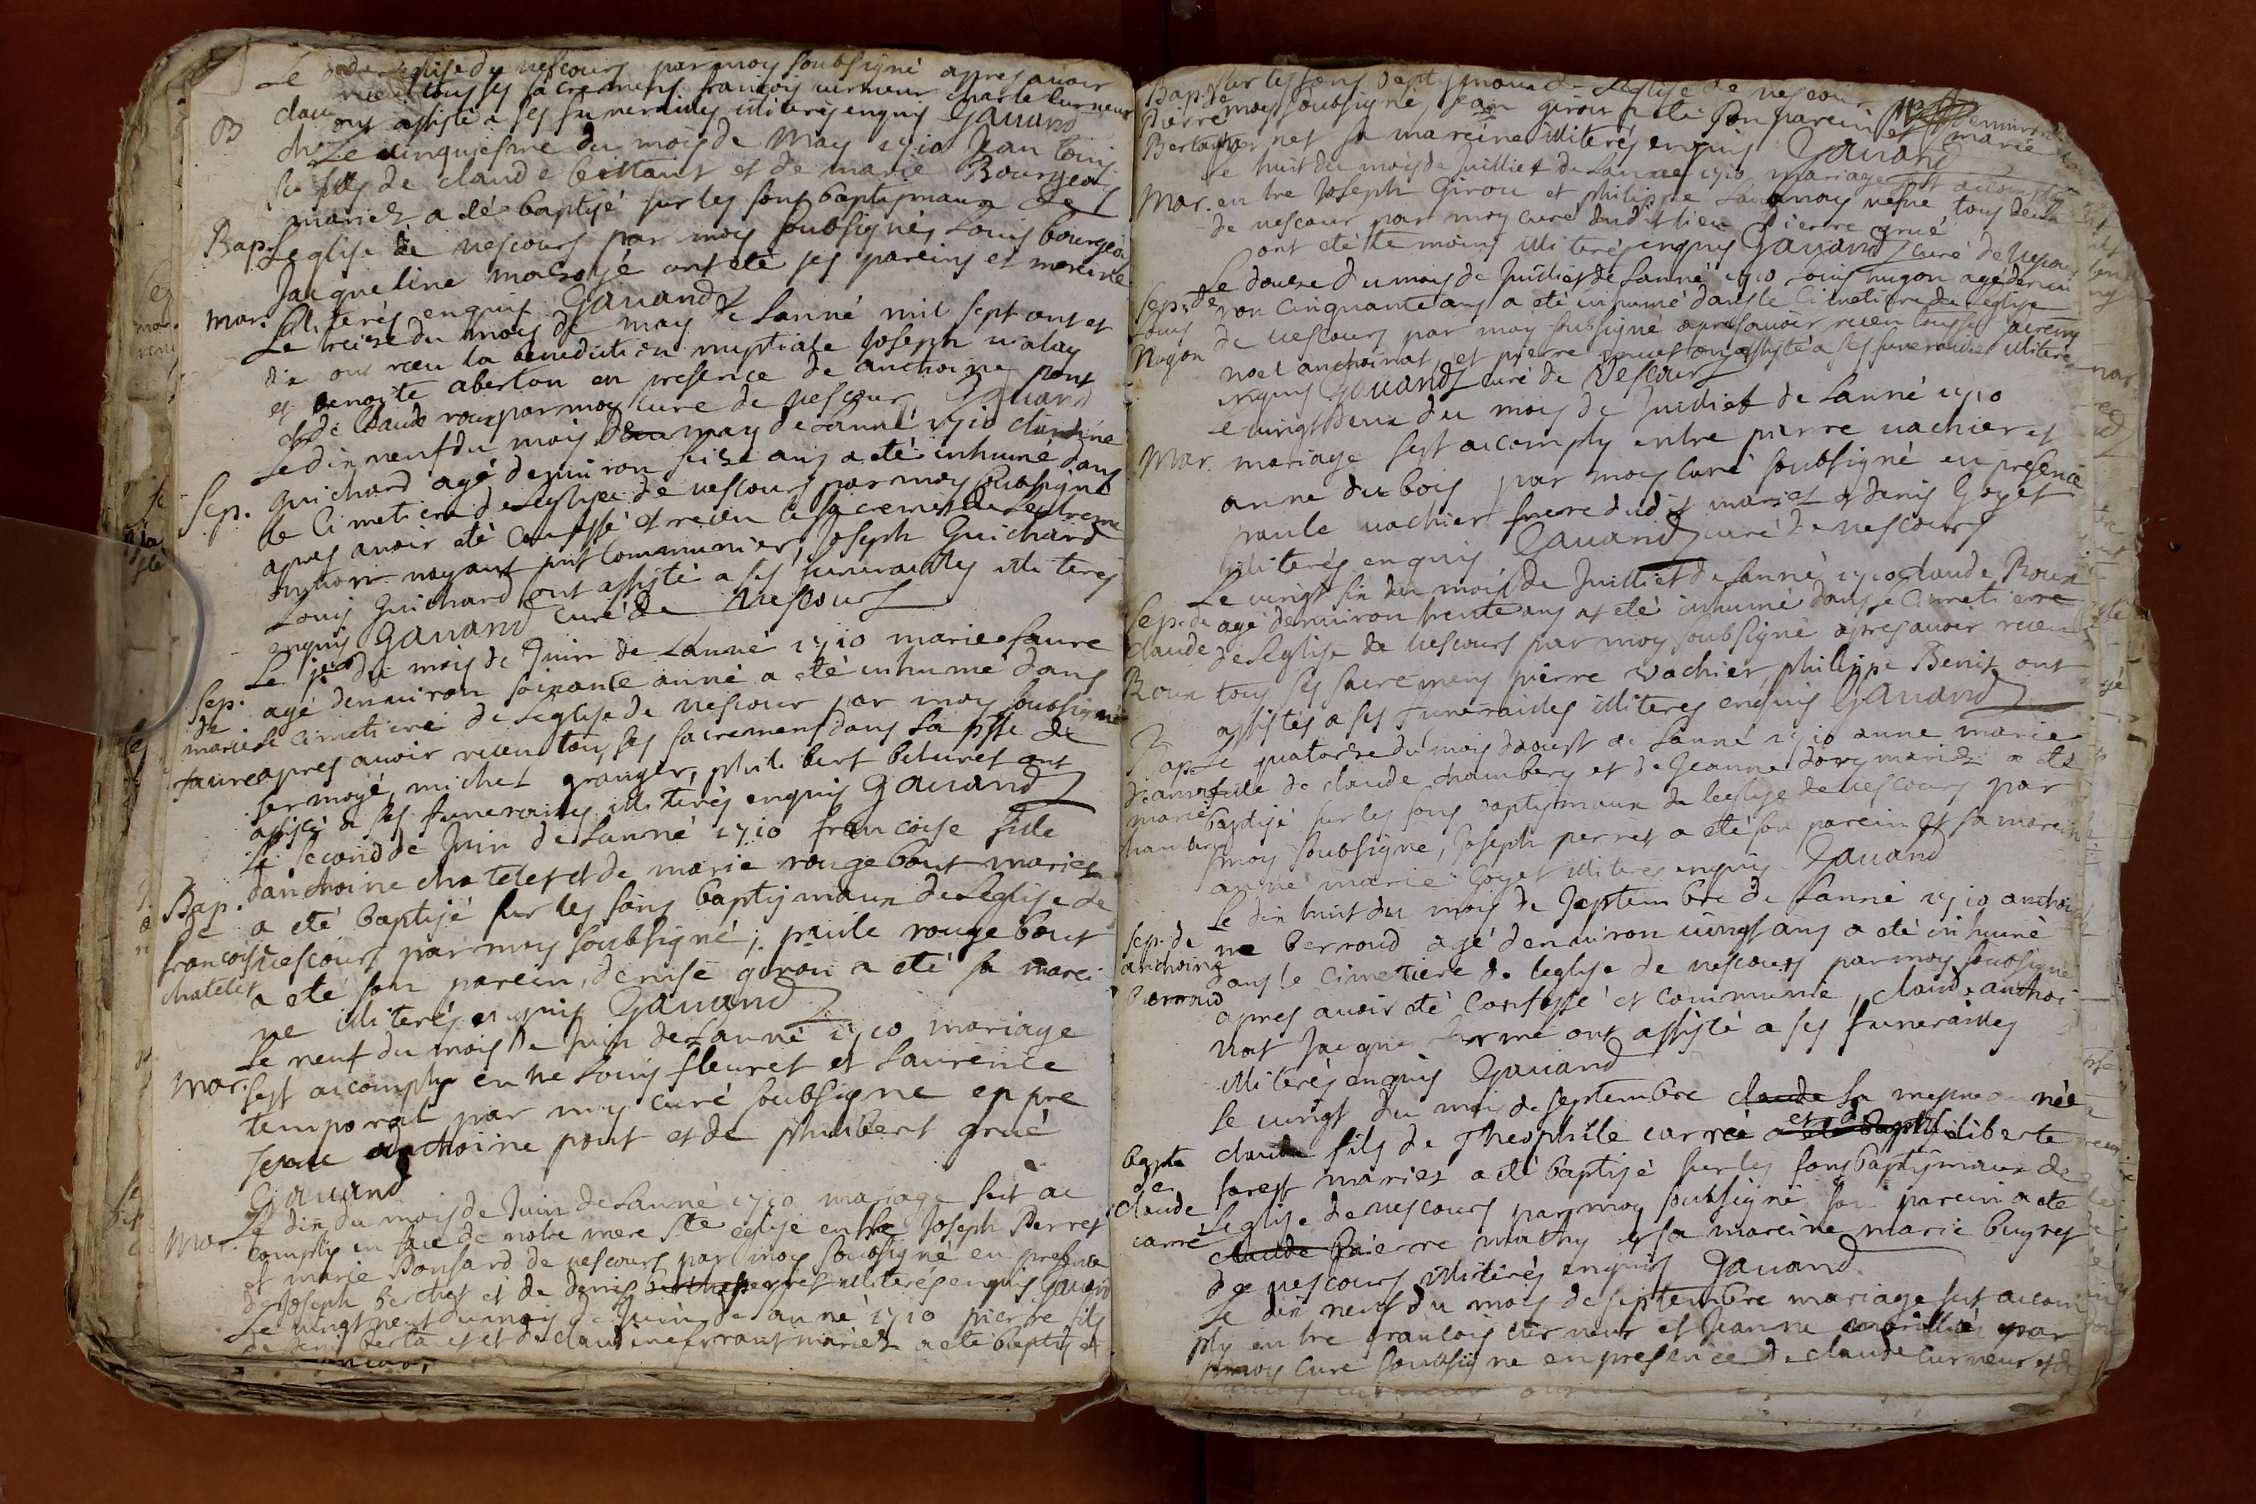 de Leglise de vescours par moy soubsigné apres avoir
receu tous ses sacremens francois curneur charle curneur
ont assisté a ses funerailles illiterés enquis Gavand
B
Le cinquiesme du mois de May 1710 Jean louis
fils de claude bettant et de marie Bourgeois
mariez a eté baptisé sur les fons baptismaux de
Bap. Leglise de vescours par moy soubsignés Louis bourgeois
Jacqueline ont eté ses pareins et mareine
illiterés enquis Gavand
mar. Le treise du mois de may de Lanné mil sept cent et
dix ont receu la benediction nuptiale Joseph vialay
et benoite aberton en presence de anthoine pont
et de claude roux par moy curé de vescour Gavand
Le dix neuf du mois de may de Lanné 1710 claudine
Sep. guichard agé denviron seise ans a eté inhumé dans
le Cimetiere de Leglise de vescours par moy soubsigné
apres avoir eté Confessé et receu le sacrement de Lextreme
onction nayant put Communier, Joseph Guichard
Louis Guichard ont assisté a ses funerailles illiteres
enquis Gavand curé de Vescours
Le du mois de Juin de Lanné 1710 marie faure
Sep. agé denviron soixante anné a eté inhumé dans
de
marie le Cimetiere de Leglise de vescour par moy soubsigné
faure apres avoir receu tous ses sacremens dans la psse de
sermoyé, michel granger, philibert beturet ont
assisté a ses funerailles illiterés enquis Gavand
Le second de Juin de Lanné 1710 francoise fille
danthoine chatelet et de marie rougebout mariez
Bap. a eté baptisé sur les fons baptismaux de Leglise de
de
francoise vescours par moy soubsigné; paule rougebout
chatelet a eté son parein, denise girou a eté sa marei
ne illiterés enquis Gavand
Le neuf du mois de Juin de Lanné 1710 mariage
mar. sest acomply entre Louis fleuret et Laurence
temporal par moy curé soubsigne en pre
sence anthoine pont et de philibert grué
Gavand
Le dix du mois de Juin de Lanné 1710 mariage sest ac
mar. comply en face de notre mere ste eglise entre Joseph Perret
et marie Ponsard de vescours par moy soubsigné en presence
de Joseph berthet et de denis perret illiterés enquis Gavand
Le vingt neuf du mois de Juin de Lanné 1710 pierre fils
de bertaut et de claudine ferrant mariez a eté baptisé
Bap. de sur les fons baptismaux de Leglise de vescour
Pierre moy soubsigné, Jean girou a eté son parein et marie
Bertaut net sa mareine illiterés enquis Gavand
Le huit du mois de Juilliet de Lanné 1710 mariage sest acomply
Mar. entre Joseph Girou et philippe vefve tous deux
de vescour par moy curé dudit lieu pierre grué
ont eté temoins illiterés enquis Gavand curé de vescour
Le douse du mois de Juilliet de Lanné 1710 Louis nugon agé denvi
Sep. de ron cinquante ans a eté inhumé dans le Cimetiere de Leglise
Louis de vescours par moy subsigné apres avoir receu tous ses sacremens
Nugon noel anthoinat, et pierre ont assisté a ses funerailles illiteré
enquis Gavand curé de Vescours
Le vingt deux du mois de Juilliet de Lanné 1710
Mar. mariage sest acomply entre pierre vachier et
anne du bois par moy curé soubsigné en presence
paule vachier frere dudit mariet et denis Goyet
illiterés enquis Gavand curé de vescours
Le vingt six du mois de Juilliet de Lanné 1710 claude Roux
Sep. de agé denviron trente ans a eté inhumé dans le Cimetierre
claude de Leglise de vescours par moy soubsigné apres avoir receu
Roux tous ses sacremens pierre vachier, philippe Benit ont
assistés a ses funerailles illiteres enquis Gavand
Bap. Le quatorze du mois daoust de Lanné 1710 anne marie
danne fille de claude chambery et de Jeanne dory mariez a eté
marie baptisé sur les fons baptismaux de leglise de vescours par
chambery moy soubsigne, Joseph perret a eté son parein et sa marein
anne marie Goyet illiteres enquis Gavand
Le dix huit du mois de septembre de Lanné 1710 anthoi
Sep. de ne berroud agé denviron vingt ans a eté inhumé
anthoine dans le Cimetiere de leglise de vescours par moy soubsigné
berroud apres avoir eté Confessé et communié, claude anthoi
nat Jacque ont assisté a ses funerailles
illiterés enquis Gavand
Le vingt du mois de septembre claude la mesme année
bapte claude fils de Theophile carré et philiberte
de forest mariez a eté baptisé sur les fons baptismaux de
claude Leglise de vescours par moy soubsigné son parein a eté
carré claude pierre mathy et sa mareine marie buyret
de vescours illiterés enquis Gavand
Le dix neuf du mois de septembre mariage sest acom
ply entre francois curneur et Jeanne par
moy curé soubsigne en presence de claude curneur et de